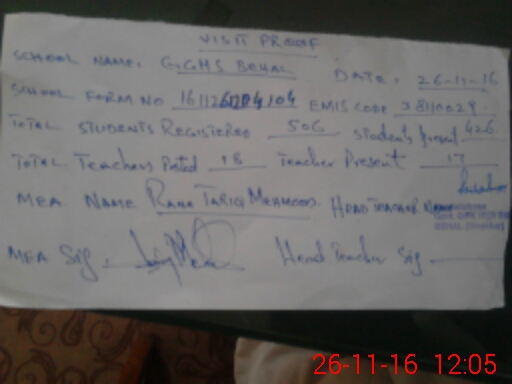 VISIT PROOF
SCHOOL NAME: GGHS BEHAL DATE: 26-11-16
SCHOOL FORM NO EMIS CODE 38110029
TOTAL STUDENTS REGISTERED 506 Students present 426
TOTAL Teachers Posted 18 Teacher Present 17
MEA NAME RANA TARIQ MEHMOOD HEAD TEACHER NAME
MEA Sig. Head Teacher Sig
26-11-16 12:05